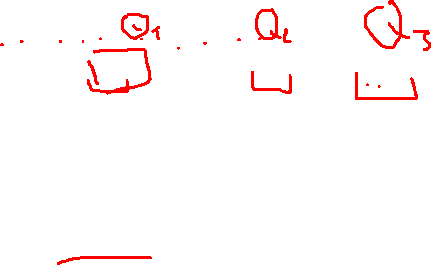 Q1 Q2 Q3